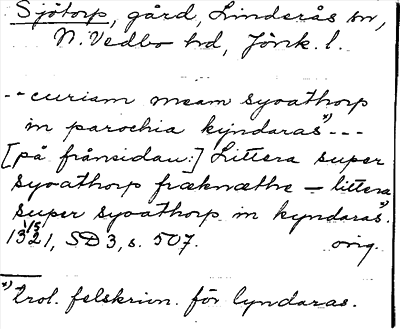 Sjötorp, gård, Linderås sn,
N. Vedbo hd, Jönk. l.
-- curiam meam syoathorp
in parochia kyndaras*) ---
[på frånsidan:] Littera super
syoathorp fræknæthe – littera
super syoathorp in kyndaras*).
1321 1/5, SD 3, s. 507. orig.
*) Trol. felskrivn. för lyndaras.